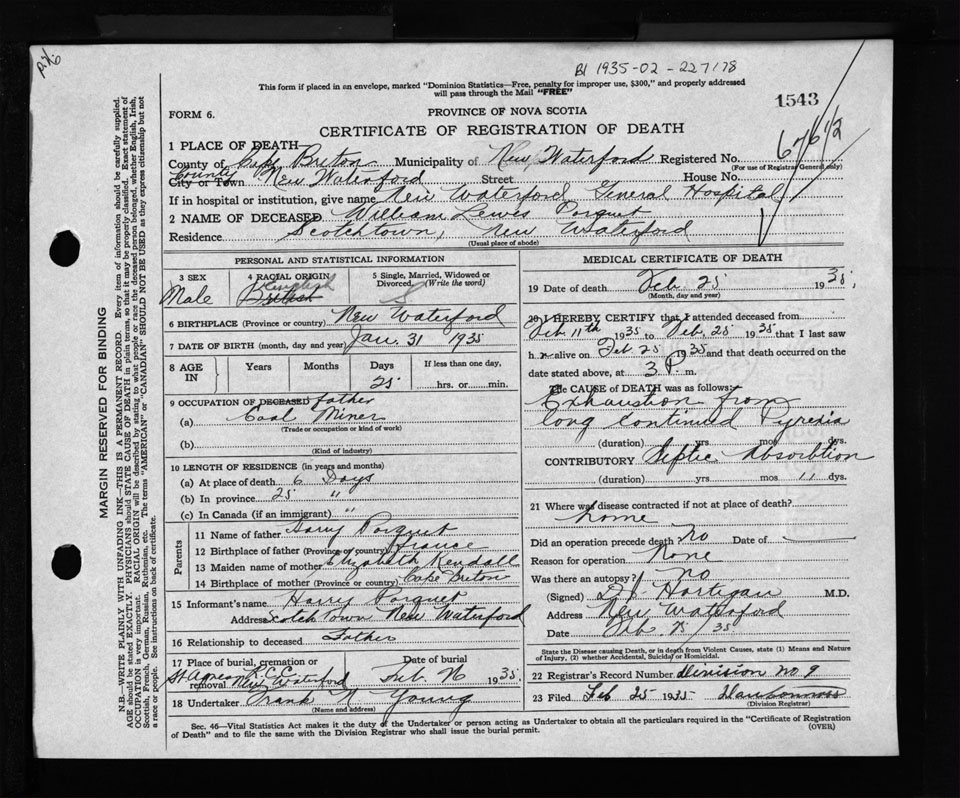 P.X.
B1 1935-02-227178
This form if placed in an envelope, marked "Dominion Statistics—Free, penalty for improper use, $300," and properly addressed
will pass through the Mail "FREE"
1543
FORM 6.
PROVINCE OF NOVA SCOTIA
CERTIFICATE OF REGISTRATION OF DEATH
1 PLACE OF DEATH
County of Cape Breton Municipality of New Waterford Registered No.
(For use of Registrar General only)
County
City or Town New Waterford Street House No.
If in hospital or institution, give name New Waterford General Hospital
2 NAME OF DECEASED William Lewes Porquet
Residence Scotchtown, New Waterford
(Usual place of abode)
PERSONAL AND STATISTICAL INFORMATION
3 SEX Male
4 RACIAL ORIGIN English British
5 Single, Married, Widowed or Divorced (Write the word) S
6 BIRTHPLACE (Province or country) New Waterford
7 DATE OF BIRTH (month, day and year) Jan. 31 1935
8 AGE IN Years Months Days 25 If less than one day, hrs. or min.
9 OCCUPATION OF DECEASED father
(a) Coal Miner
(Trade or occupation or kind of work)
(b)
(Kind of industry)
10 LENGTH OF RESIDENCE (in years and months)
(a) At place of death 6 Days
(b) In province 25 "
(c) In Canada (if an immigrant) "
Parents
11 Name of father Harry Porquet
12 Birthplace of father (Province or country) France
13 Maiden name of mother Elizabeth Kendall
14 Birthplace of mother (Province or country) Cape Breton
15 Informant's name Harry Porquet
Address Scotch Town New Waterford
16 Relationship to deceased Father
17 Place of burial, cremation or removal St Agnes R.C.C. New Waterford
Date of burial Feb. 26 1935
18 Undertaker Frank Young
(Name and address)
MEDICAL CERTIFICATE OF DEATH
19 Date of death Feb 25 1935
(Month, day and year)
20 I HEREBY CERTIFY that I attended deceased from
Feb 11th 1935 to Feb. 25 1935 that I last saw
h alive on Feb 25 1935 and that death occurred on the
date stated above, at 3 P. m.
The CAUSE of DEATH was as follows:
Exhaustion from
long continued Pyrexia
(duration) yrs mos dys.
CONTRIBUTORY Septic Absorbtion
(duration) yrs mos 11 dys.
21 Where was disease contracted if not at place of death?
home
Did an operation precede death No Date of
Reason for operation None
Was there an autopsy? no
(Signed) Hartigan M.D.
Address New Waterford
Date Feb 25/35
State the Disease causing Death, or in death from Violent Causes, state (1) Means and Nature
of Injury, (2) whether Accidental, Suicidal or Homicidal.
22 Registrar's Record Number division no. 9
23 Filed Feb 25 1935
(Division Registrar)
Sec. 46—Vital Statistics Act makes it the duty of the Undertaker or person acting as Undertaker to obtain all the particulars required in the "Certificate of Registration
of Death" and to file the same with the Division Registrar who shall issue the burial permit.
(OVER)
MARGIN RESERVED FOR BINDING
N.B.—WRITE PLAINLY WITH UNFADING INK—THIS IS A PERMANENT RECORD. Every item of information should be carefully supplied.
AGE should be stated EXACTLY. PHYSICIANS should STATE CAUSE OF DEATH in plain terms, so that it may be properly classified. Exact statement of
OCCUPATION is very important. RACIAL ORIGIN will be described by stating to what people or race the deceased person belonged, whether English, Irish,
Scottish, French, German, Russian, Ruthenian, etc. The terms "AMERICAN" or "CANADIAN" SHOULD NOT BE USED as they express citizenship but not
a race or people. See instructions on back of certificate.